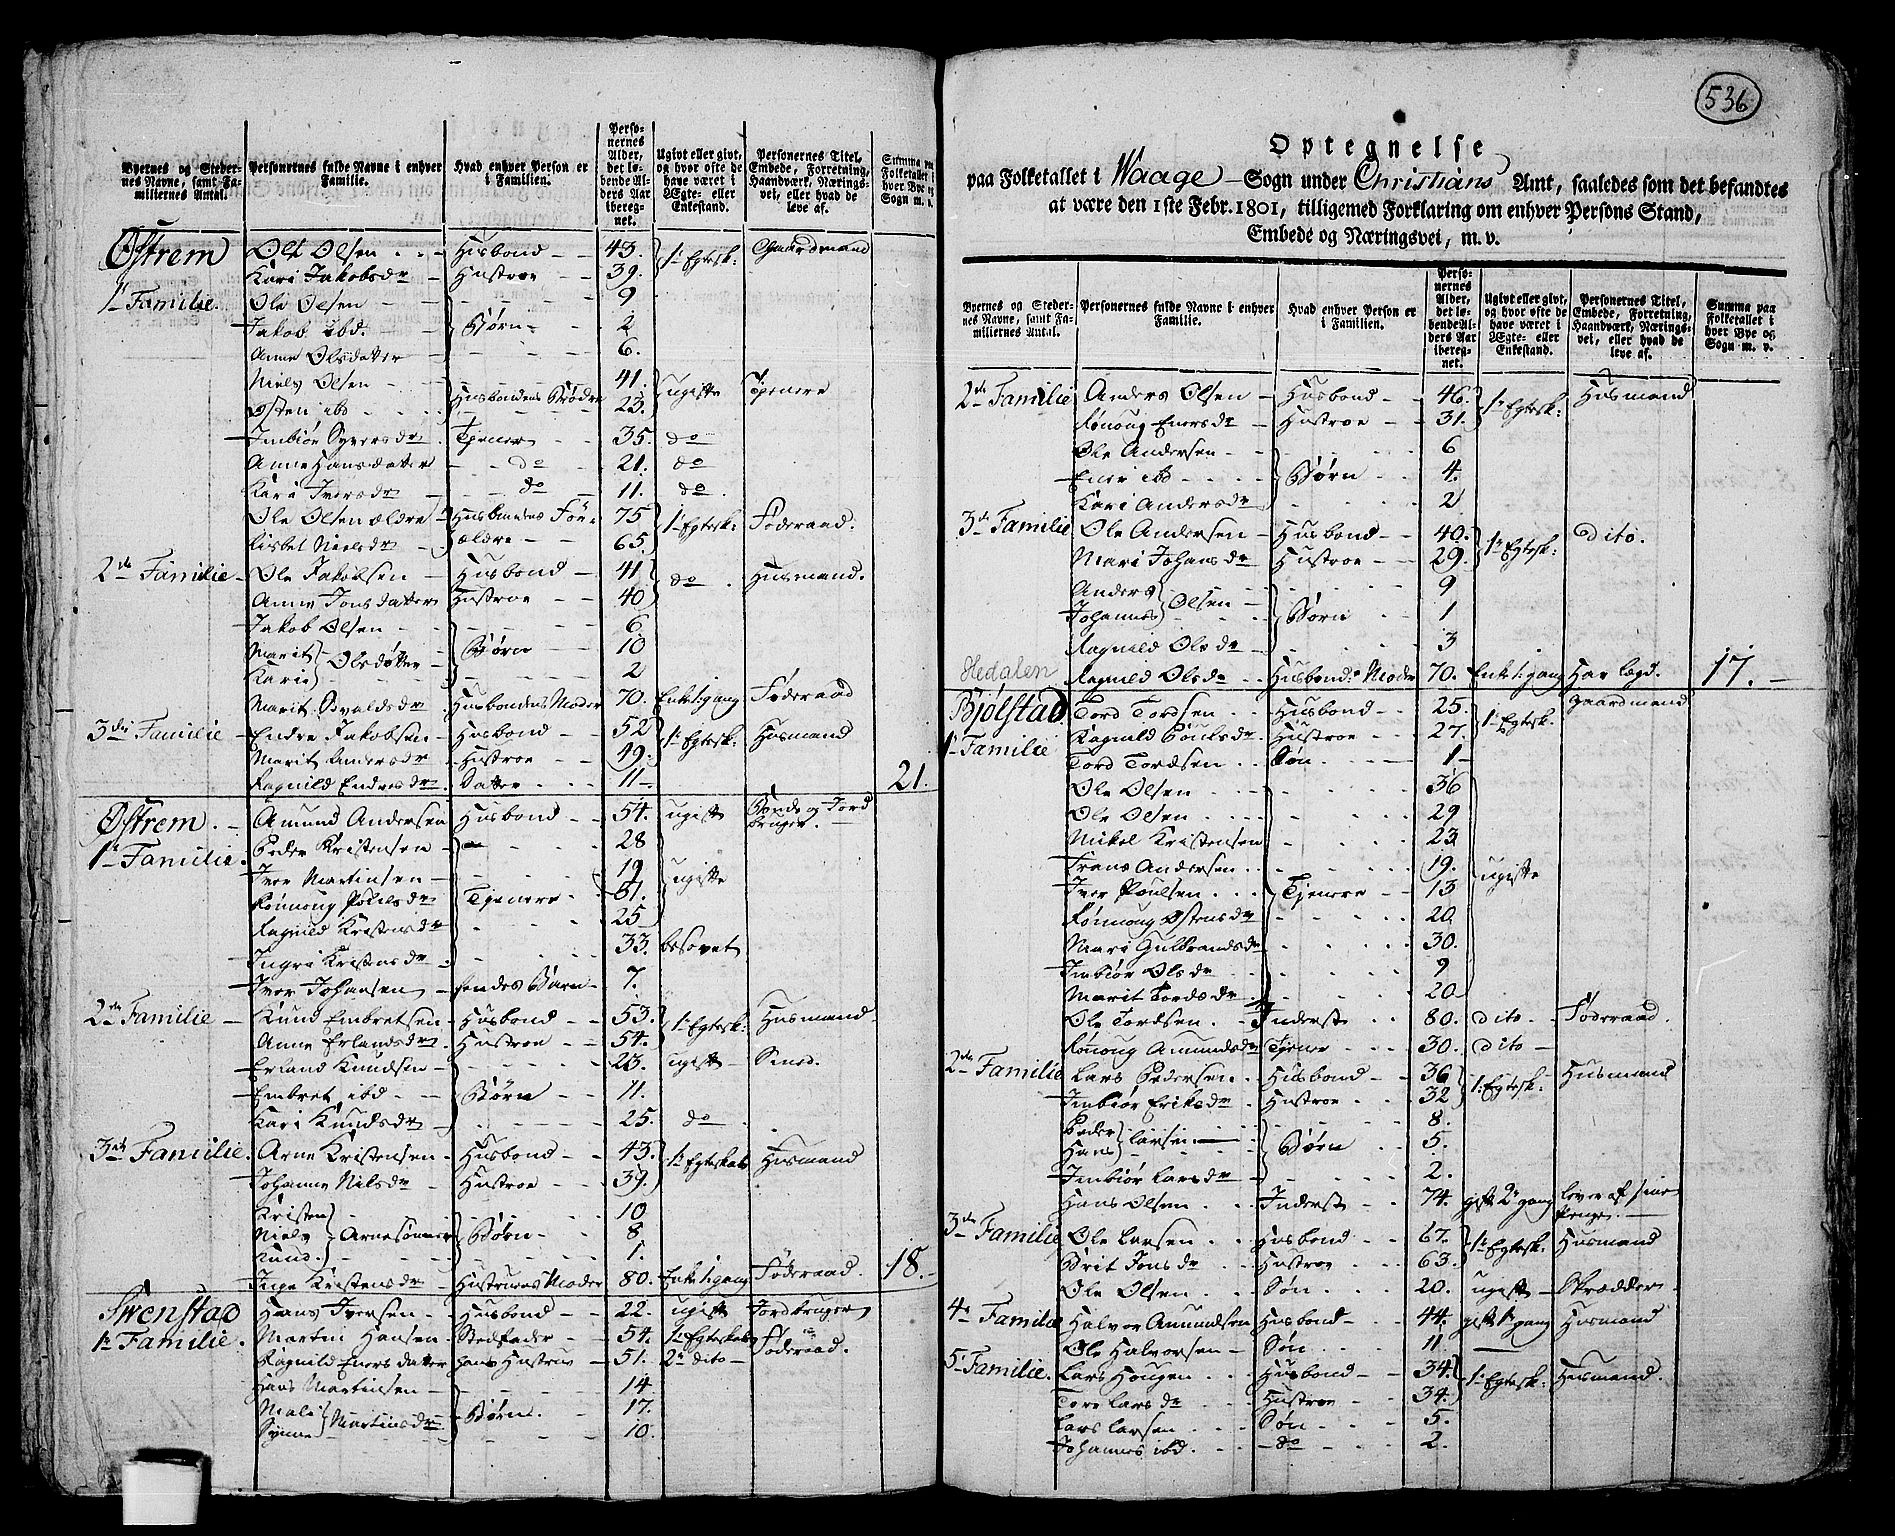 Byernes og Stedernes Navne, samt Familiernes Antal.
Personernes fulde Navne i enhver Familie.
Hvad enhver Person er i Familien.
Personernes Alder, det løbende Alders Aar iberegnet.
Ugivt eller givt, og hvor ofte de have været i Ægte- eller Enkestand.
Personernes Titel, Embede, Forretning, Haandværk, Næringsvei, eller hvad de leve af.
Summa paa Folketallet i hver Bye og Sogn m. v.
Østrem Ole Olsen Husbond 43. 1te Egtesk: Gaardmand
Kari Jakobsdr Hustroe 39.
1te Familie Ole Olsen 9
Jakob ibd. Børn 2
Anne Olsdatter 6.
Niels Olsen Husbondens Brødre 41. ugifte Tjenere
Østen ibd 23.
Imbiør Syversdr Tjener 35. do
Anne Hansdatter do 21. do
Kari Iversdr do 11. do
Ole Olsen ældre Husbondens For- 75 1te Egtesk: Føderaad.
Lisbet Nielsdr ældre 65.
2den Familie Ole Jakobsen Husbond 41 do Husmand.
Anne Jonsdatter Hustroe 40
Jakob Olsen 6.
Marit Olsdøtter Børn 10
Kari 2
Marit Hvaldsdr Husbondens Moder 70. Enke 1 gang Føderaad
3die Familie Endre Jakobsen Husbond 52 1te Egtesk: Husmand
Marit Andersdr Hustroe 49.
Ragnild Endresdr Datter 11 21.
Østrem Amund Andersen Husbond 54. ugift Bonde og Jord
bruger.
1te Familie Peder Kristensen 28
Iver Martinsen 19 ugifte
Rønnoug Poulsdr Tjenere 51.
Ragnild Kristensdr 25
Ingri Kristensdr 33. besovet
Iver Johansen hendes Barn 7.
2den Familie Knud Embretsen Husbond 53. 1te Egtesk: Husmand
Anne Erlandsdr Hustroe 54.
Erland Knudsen 23. ugift Smed.
Embret ibd Børn 11.
Kari Knudsdr 25. do
3die Familie Arne Kristensen Husbond 43. 1te Egteskab Husmand
Johanne Nilsdr Hustroe 39.
Kristen 10
Niels Arnesønner Børn 8
Knud. 1.
Inge Kristensdr Hustruens Moder 80. Enke 1 gang Føderaad. 18.
Swenstad Hans Iversen Husbond 22. ugift Jordbruger
1te Familie Martin Hansen Stedfader 54. 1te Egteskab Føderaad.
Ragnild Enersdatter hans Hustrue 51. 2det dito
Hans Martinsen 14
Mali Martinsdr Børn 17.
Synne 10.
536
Optegnelse
paa Folketallet i Waage Sogn under Christians Amt, saaledes som det befandtes
at være den 1ste Febr. 1801, tilligemed Forklaring om enhver Persons Stand,
Embede og Næringsvei, m. v.
Byernes og Stedernes Navne, samt Familiernes Antal.
Personernes fulde Navne i enhver Familie.
Hvad enhver Person er i Familien.
Personernes Alder, det løbende Alders Aar iberegnet.
Ugivt eller givt, og hvor ofte de have været i Ægte- eller Enkestand.
Personernes Titel, Embede, Forretning, Haandværk, Næringsvei, eller hvad de leve af.
Summa paa Folketallet i hver Bye og Sogn m. v.
2den Familie Anders Olsen Husbond 46. 1te Egtesk: Husmand
Rønoug Enersdr Hustroe 31.
Ole Andersen 6
Ener ibd Børn 4.
Kari Andersdr 2
3die Familie Ole Andersen Husbond 40. 1te Egtesk: dito.
Mari Johansdr Hustroe 29.
Anders Olsen 9
Johannes Børn 1
Ragnild Olsdr 3
Hedalen Ragnild Olsdr Husbond: Moder 70. Enke 1 gang Har lægd. 17.
Bjølstad Tord Tordsen Husbond 25. 1te Egtesk. Gaardmand
1te Familie Ragnild Poulsdr Hustroe 27.
Tord Tordsen Søn 1
Ole Olsen 36
Ole Olsen 29
Mikel Kristensen 23
Frans Andersen 19.
Iver Poulsen Tjenere 13 ugifte
Rønnoug Østensdr 20.
Mari Gulbrandsdr 30.
Imbiør Olsdr 9
Marit Tordsdr 20
Ole Tordsen Inderst 80. dito Føderaad.
Rønoug Amundsdr Tjener 30. dito
2den Familie Lars Pedersen Husbond 36 1te Egtesk: Husmand
Imbiør Eriksdr Hustroe 32
Peder Larsen 8.
Hans Børn 5.
Imbiør Larsdr 2.
Hans Olsen Inderst 74. gift 2 gang lever af sine
Penge.
3die Familie Ole Larsen Husbond 67. 1te Egtesk. Husmand
Brit Jonsdr Hustroe 63.
Ole Olsen Søn 20. ugift Skrædder
4de Familie Halvor Amundsen Husbond 44. gift 1 gang Husmand
Ole Halvorsen Søn 11
5te Familie. Lars Hougen Husbond 34. 1te Egtesk: Husmand.
Tore Larsdr Hustroe 34.
Lars Larsen Søn 5.
Johannes ibd. do 2.